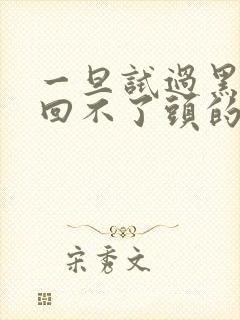 一旦試過黑
回不了頭的
宋秀文